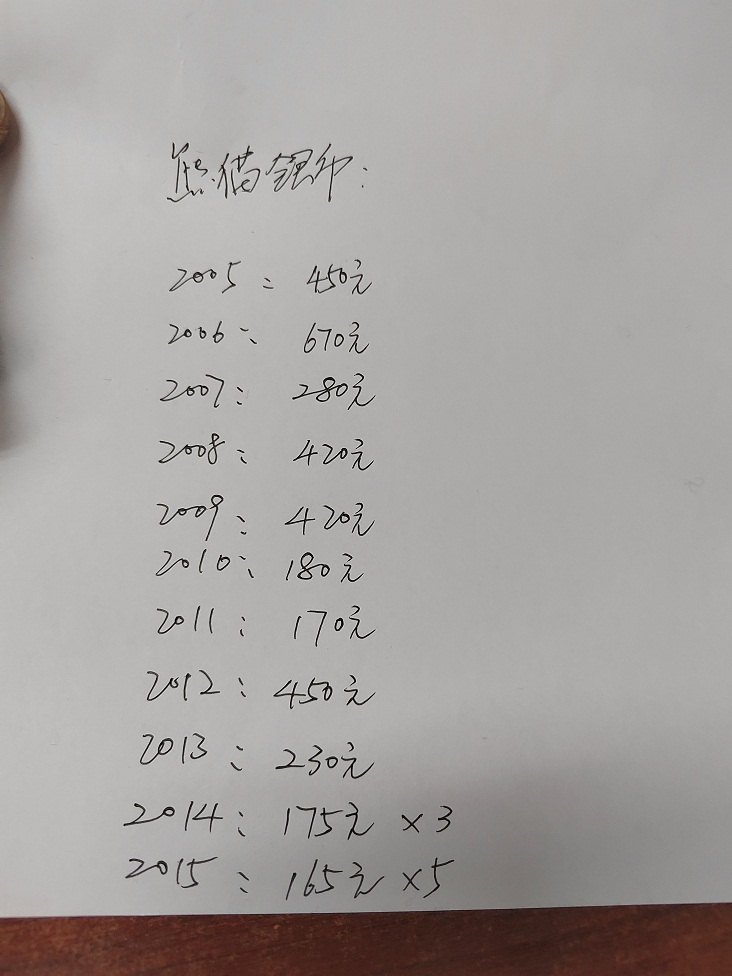 熊猫银币:
2005: 450元
2006: 670元
2007: 280元
2008: 420元
2009: 420元
2010: 180元
2011: 170元
2012: 450元
2013: 230元
2014: 175元 ×3
2015: 165元 ×5